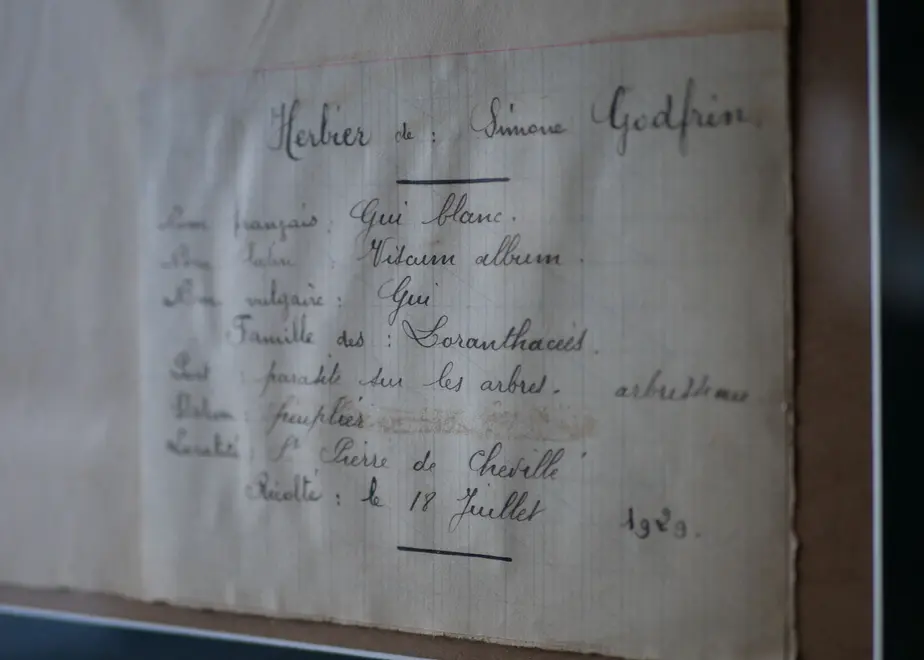 Herbier de : Simone Godfrin
Nom français : Gui blanc.
Nom latin : Viscum album.
Nom vulgaire : Gui
Famille des : Loranthacées.
Port : parasite sur les arbres.
Station : peuplier
Localité : St Pierre de Chevillé
Récolté : le 18 Juillet 1929.